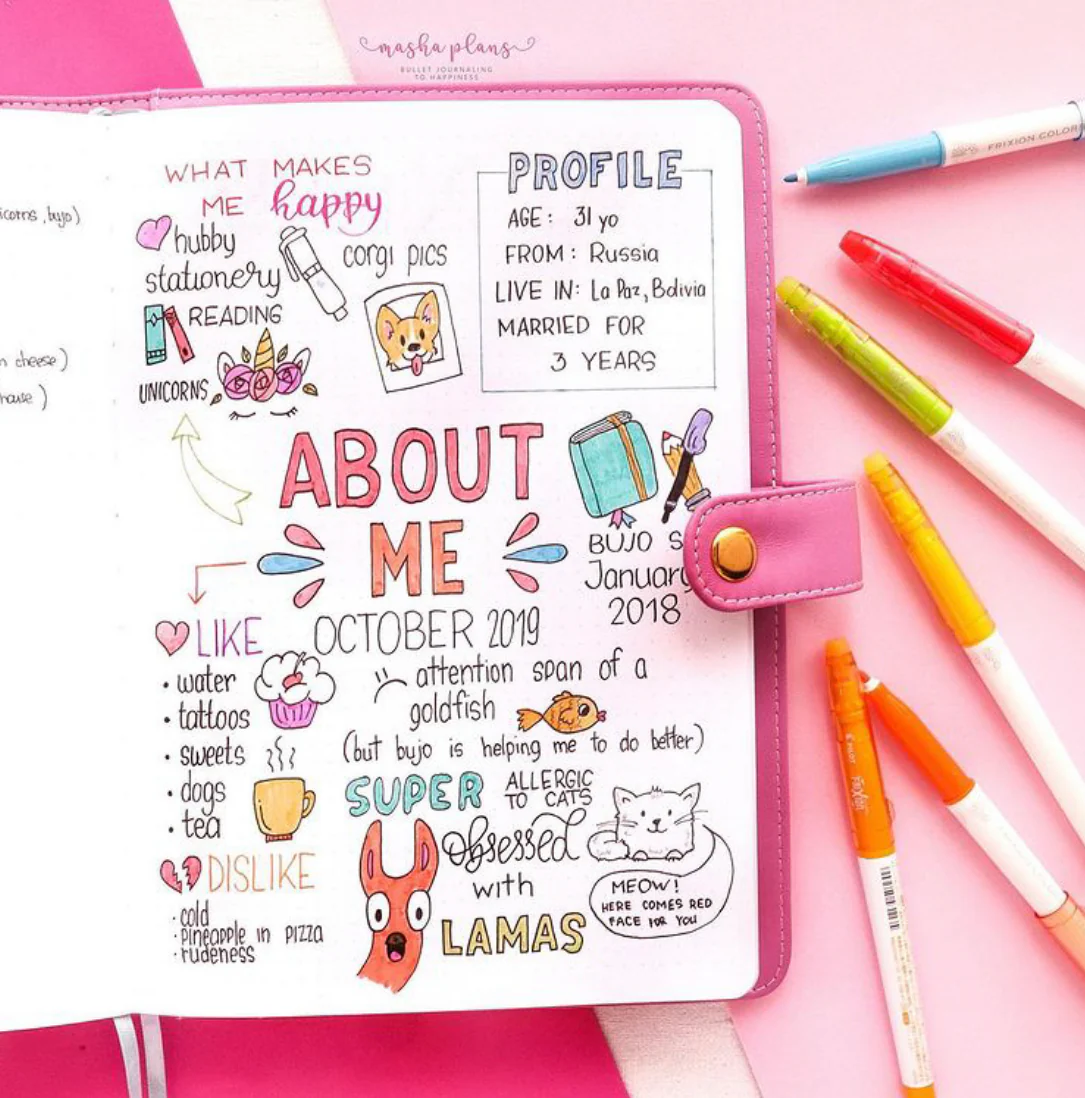 masha plans
BULLET JOURNALING
TO HAPPINESS
icorns, bujo)
cheese)
WHAT MAKES
ME happy
hubby
stationery
corgi pics
READING
UNICORNS
PROFILE
AGE: 31 yo
FROM: Russia
LIVE IN: La Paz, Bolivia
MARRIED FOR
3 YEARS
ABOUT
ME
OCTOBER 2019
BUJO S
January
2018
LIKE
• water
• tattoos
• sweets
• dogs
• tea
DISLIKE
• cold
• pineapple in pizza
• rudeness
attention span of a
goldfish
(but bujo is helping me to do better)
SUPER
ALLERGIC
TO CATS
obsessed
with
LAMAS
MEOW!
HERE COMES RED
FACE FOR YOU
FRIXION COLORS
PILOT FriXion